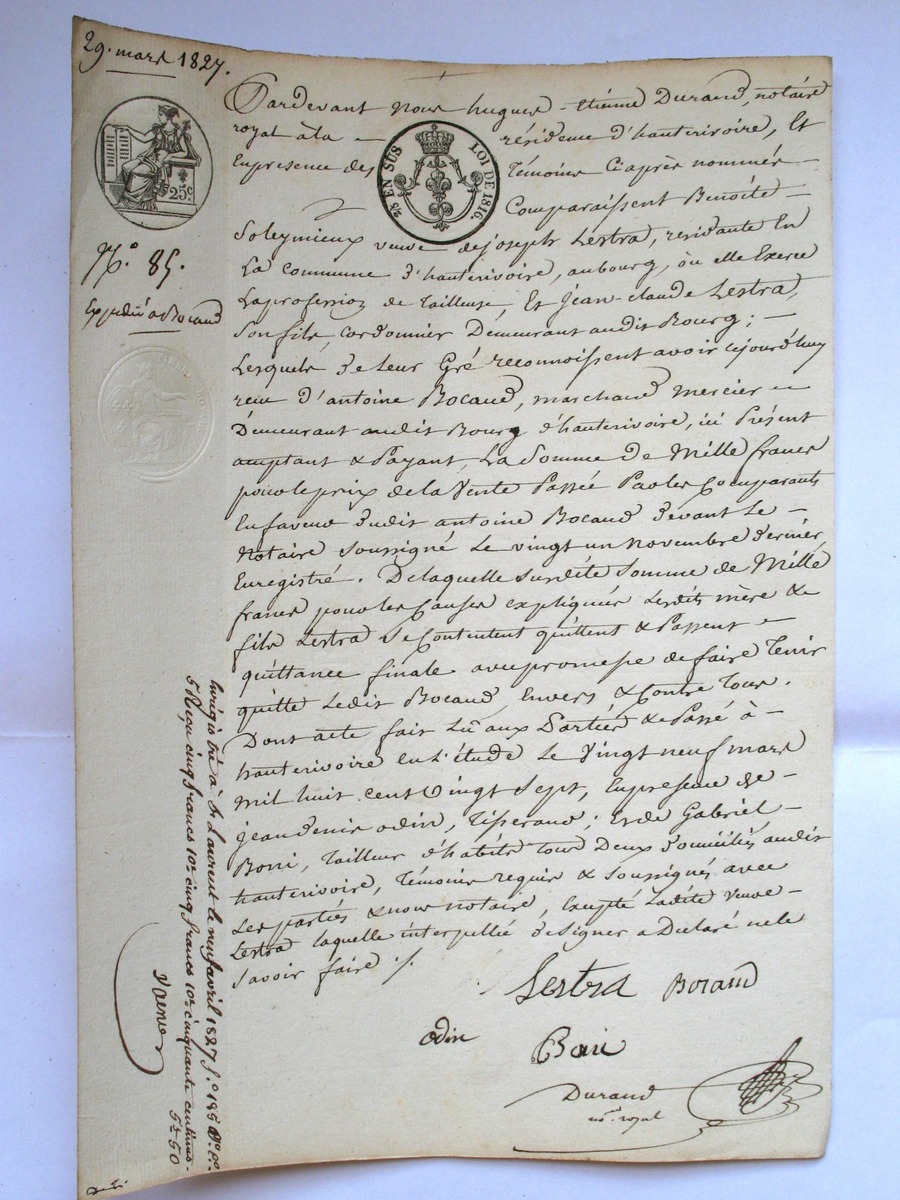 29. mars 1827.
25c.
N.° 85.
Expedié a Bocaud
2/5 EN SUS LOI DE 1816.
Pardevant Nous hugues-Etiénne Durand, notaire
royal à la résidence d'hauterivoire, Et
En presence des Témoins Ciaprès nommés
Comparaissent Benoite
Soleymieux veuve de joseph Lestra, residante En
La Commune d'hauterivoire, au bourg, ou elle Exerce
La profession de Tailleuse, Et Jean-Claude Lestra,
Son fils, Cordonnier Demeurant audit Bourg;
Lesquels de Leur Gré reconnoissent avoir cejourd'huy
reçu d'antoine Bocaud, marchand mercier
Demeurant audit Bourg d'hauterivoire, ici Présent
acceptant & Payant, La Somme de Mille francs
pour le prix de la Vente Passée Par les Comparants
En faveur dudit antoine Bocaud devant Le
Notaire Soussigné Le vingt un Novembre dernier,
Enregistré. De laquelle Susdite Somme de Mille
francs pour les Causes expliquées Lesdits mère &
fils Lestra Se Contentent quittent & Passent
quittance finale avec promesse de faire Tenir
quitte Ledit Bocaud, Envers & Contre Tous.
Dont acte fait Lu aux Parties & Passé à
hauterivoire en L'étude Le Vingt neuf mars
mil huit cent Vingt Sept, En presence de
jean denis odin, Tisserand; Et de Gabriel
Borri, Tailleur d'habits Tous Deux Domiciliés audit
hauterivoire, Témoins requis & Soussignés avec
Les parties & nous notaire, Excepté Ladite Veuve
Lestra laquelle interpellée de Signer a Déclaré ne le
Savoir faire ./.
Lestra Bocaud
odin Borri
Durand
no.re royal
Enrégistré à St Laurent le neuf avril 1827 f.° 186
Reçu cinq francs 10e cinq francs 10e cinquante centimes
5f 50